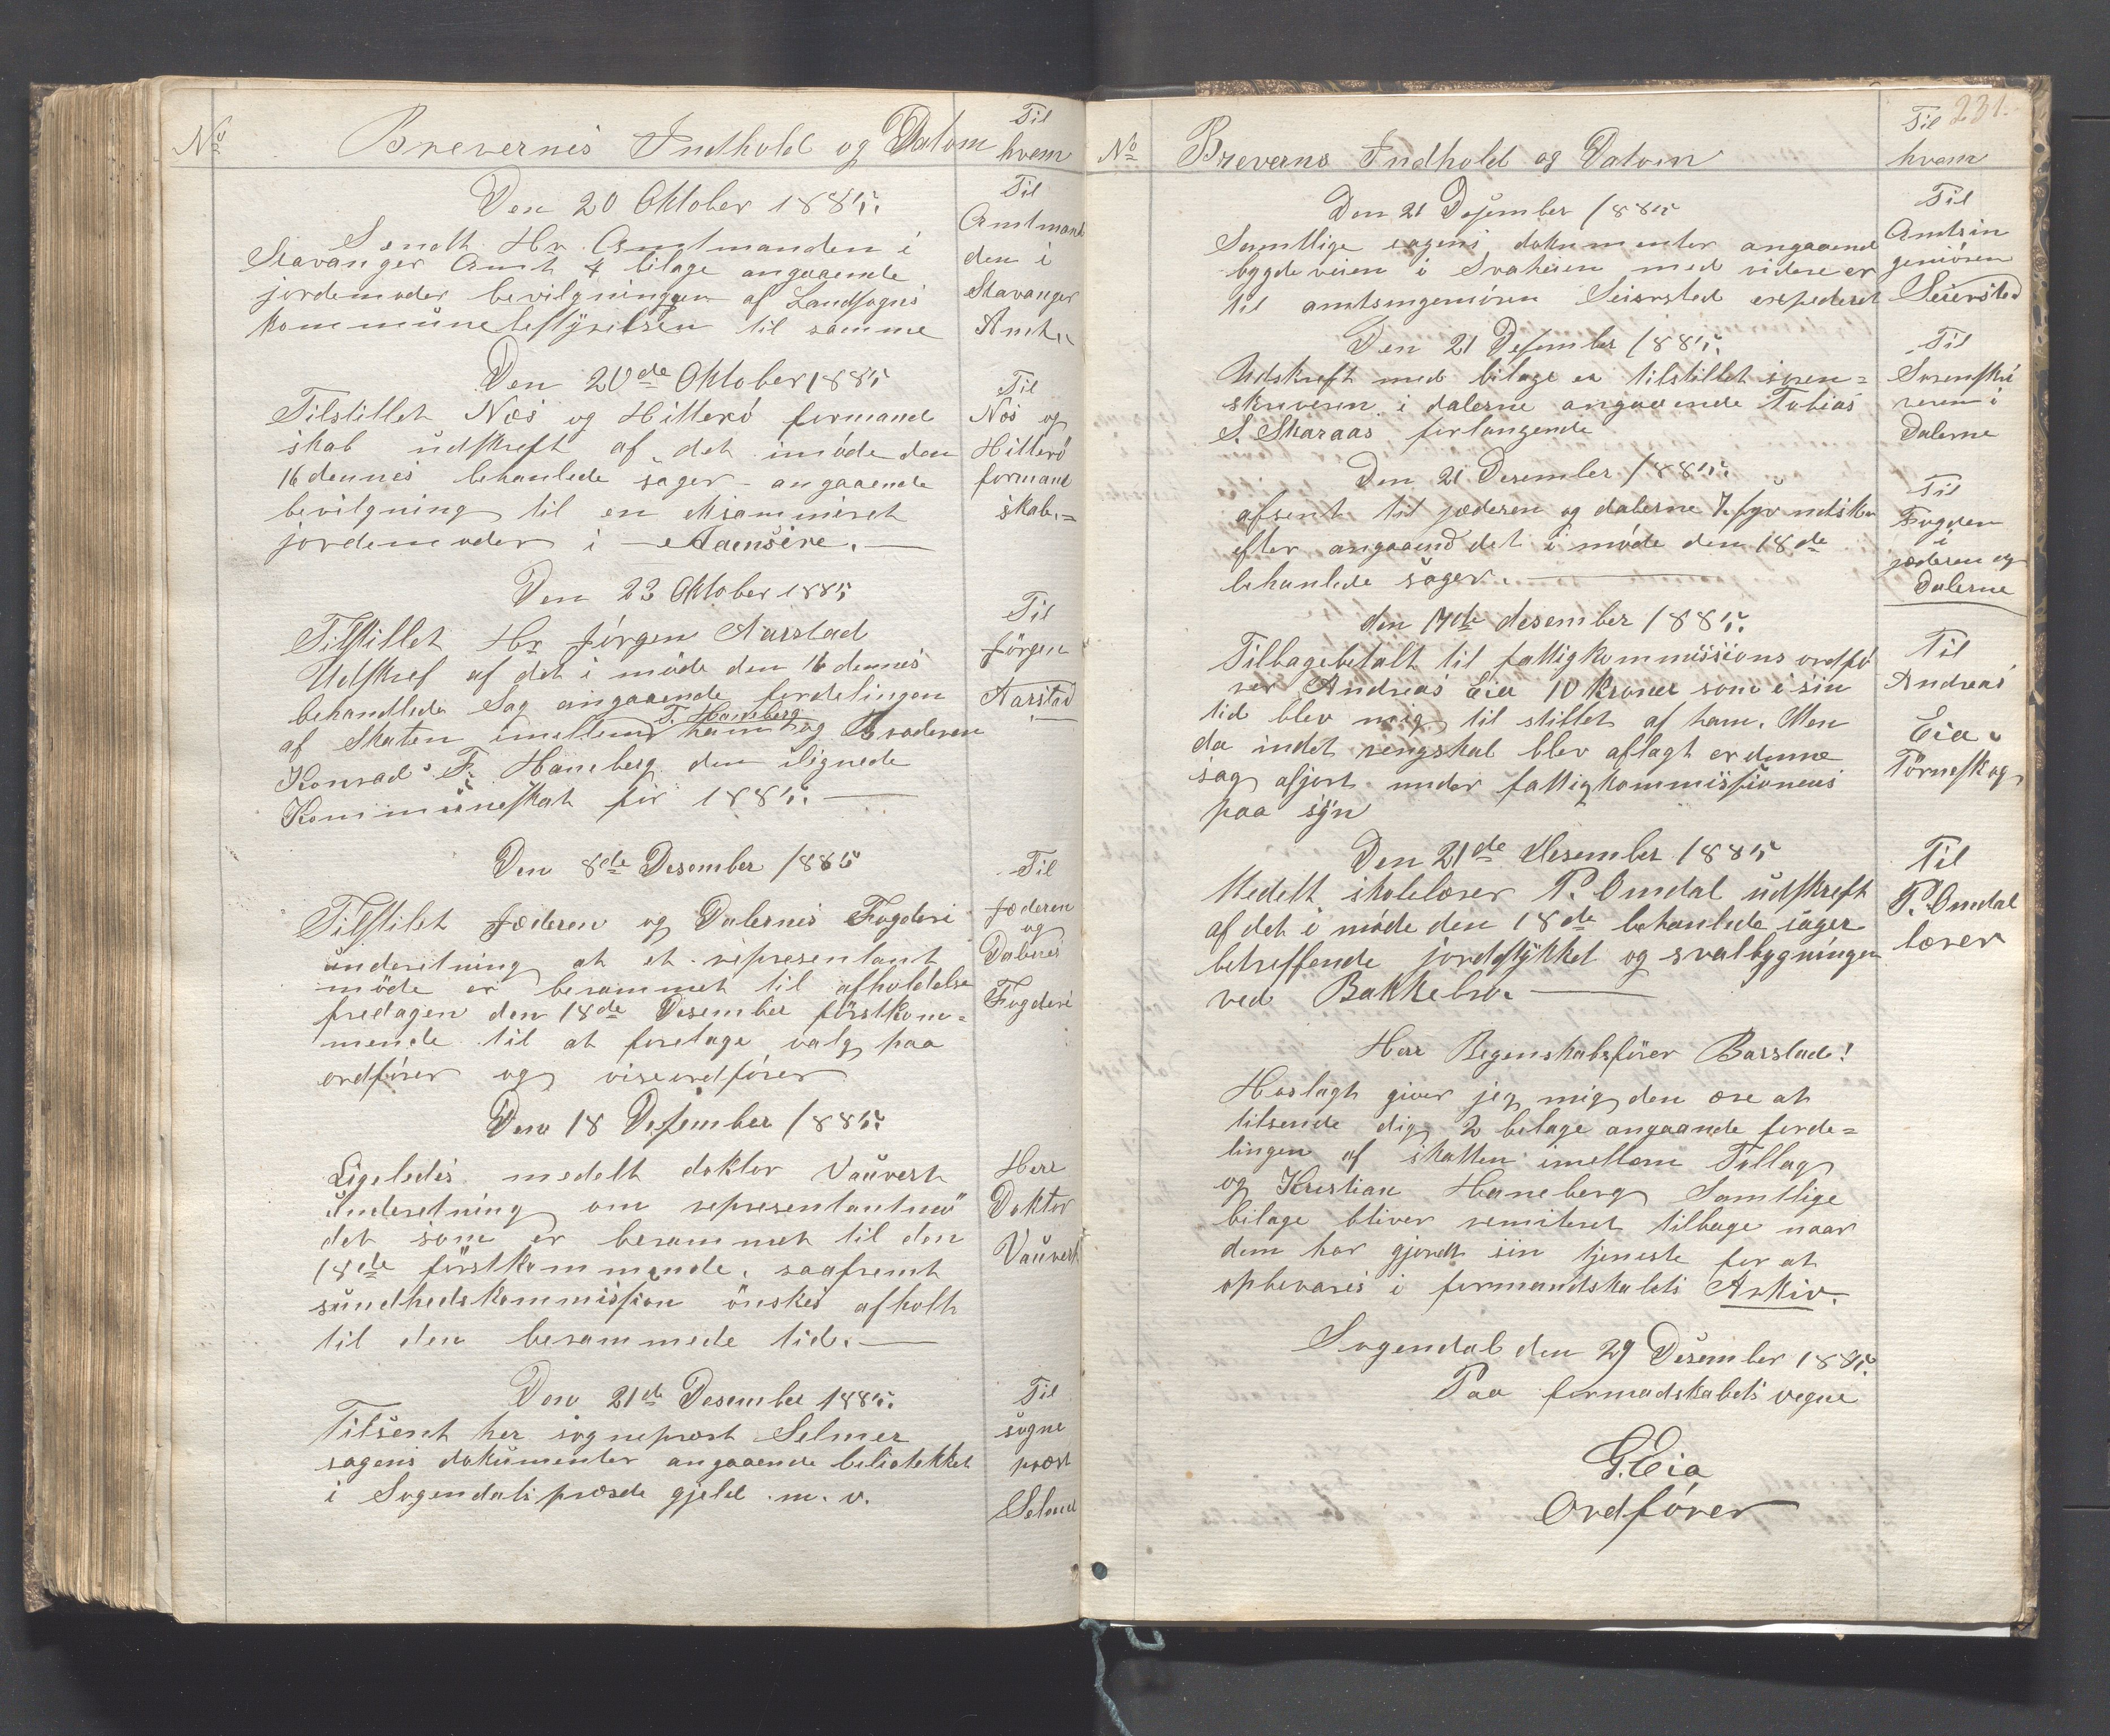 No
Brevernes Indhold og Datom
Til
hvem
Den 20 Oktober 1885.
Sendt Hr. Amtmanden i
Stavanger Amt 4 bilage angaaende
jordemoder bevilgningen af Landsogns
kommunebestyrelsen til samme
Til
Amtmand
den i
Stavanger
Amt.
Den 20de Oktober 1885
Tilstillet Nes og Hitterö formand
skab udskreft af det i möde den
16 dennes behanlede sager angaaende
bevilgning til en eksamineret
jordemoder i Aaensire.
Til
Nes og
Hitterö
formand
skab.
Den 23 Oktober 1885
Tilstillet Hr Jörgen Aarstad
Udskref af det i möde den 16 dennes
behandlede Sag angaaende fordelingen
T. Haneberg
af Skaten imellem ham og Broderen
Konrad F. Haneberg den ilignede
Kommuneskat for 1885.
Til
Jörgen
Aarstad
Den 8de Desember 1885
Tilstilet Jæderen og Dalernes Fogderi
underetning at et representant
möde er berammet til afholdelse
fredagen den 18de Desember förstkom=
mende til at foretage valg paa
ordförer og viseordförer
Til
Jæderen
og
Dalernes
Fogderi
Den 18 Desember 1885.
Ligeledes medelt doktor Vauvert
underetning om representantmö
det som er berammet til den
18de förstkommende, saafremt
sundhedskommission önskes afholt
til den berammede tid.
Herr
Doktor
Vauvert
Den 21de Desember 1885.
Tilsent her sogneprest Selmer
sagens dokumenter angaaende bibliotekket
i Sogendals præste gjeld m. v.
Til
sogne
præst
Selmer
231.
No
Breverns Indhold og Datom
Til
hvem
Den 21 Desember 1885
Samtlige sagens dokumenter angaaend
bygdeveien i Svaheien med videre er
til amtsingeniören Seiersted expederet
Til
Amtsin
geniören
Seiersted
Den 21 Desember 1885.
Udskreft med bilage er tilstillet soren=
skriveren i dalerne angaaende Tobias
S. Skaraas forlangende
Til
Sorenskri
veren i
Dalerne
Den 21 Desember 1885.
afsent til jæderen og dalerne
efter angaaend det i möde den 18de
behanlede sager.
Til
Fogden
i
jæderen og
Dalerne
den 17de desember 1885.
Tilbagebetalt til fattigkommissions ordfö
rer Andreas Eia 10 kroner som i sin
tid blev mig til stillet af ham. Men
da indet rengskab blev aflagt er denne
sag afjort under fattigkommissionens
paa syn
Til
Andreas
Eia
Törneskog
Den 21de Desember 1885
Medelt skolelærer P. Omdal udskreft
af det i möde den 18de behanlede sager
betreffende jordstykket og svalbygningen
ved Bakkebro.
Til
P. Omdal
lærer
Herr Regenskabsförer Barstad!
Hoslagt giver jeg mig den ære at
tilsende dig 2 bilage angaande forde=
lingen af skatten imellem Tollag
og Kristian Haneberg Samtlige
bilage bliver remiteret tilbage naar
dem har gjordt sin tjeneste for at
opbevares i formandtskabets Arkiv.
Sogendal den 29 Desember 1885.
Paa formadskabets vegne
G. Eia
Ordförer